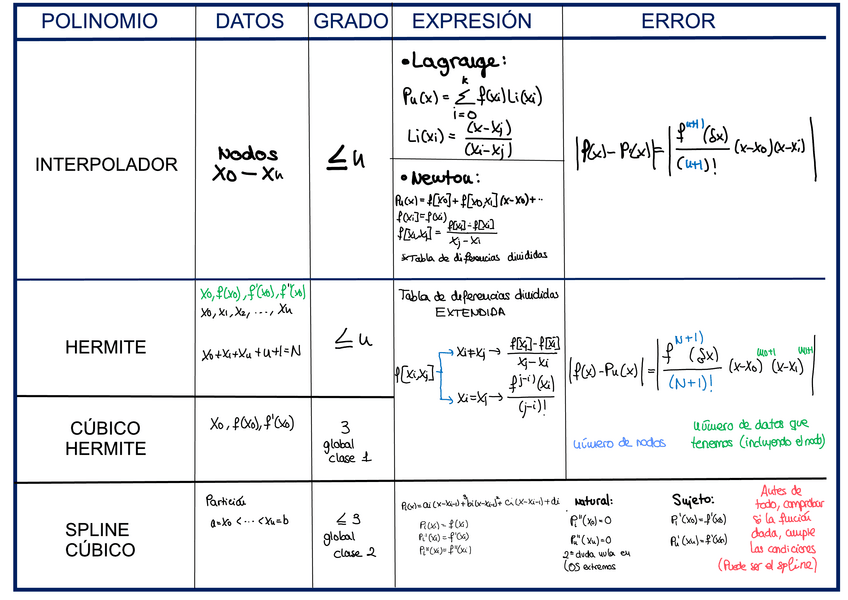 POLINOMIO DATOS GRADO EXPRESIÓN ERROR
INTERPOLADOR
Nodos
X0 — Xu
≤ u
• Lagrange:
Pu(x) = Σ f(xi) Li(xi)
k
i=0
Li(xi) = (x-xj) / (xi-xj)
• Newton:
Pu(x) = f[x0] + f[x0,x1] (x-x0) + ..
f[xi] = f(xi)
f[xi,xj] = f[xj] - f[xi] / xj - xi
*Tabla de diferencias divididas
|f(x) - Pi(x)| = | f^(u+1) (δx) / (u+1)! (x-x0)(x-xi) |
HERMITE
x0, f(x0), f'(x0), f''(x0)
x0, x1, x2, ..., xu
x0+x1+xu+u+1=N
≤ u
Tabla de diferencias divididas
EXTENDIDA
f[xi,xj]
xi≠xj → f[xj] - f[xi] / xj - xi
xi=xj → f^(j-i) (xi) / (j-i)!
|f(x) - Pu(x)| = | f^(N+1) (δx) / (N+1)! (x-x0)^(u0+1) (x-xi)^(u1+1) |
CÚBICO
HERMITE
x0, f(x0), f'(x0)
3
global
clase 1
número de nodos
número de datos que
tenemos (incluyendo el nodo)
SPLINE
CÚBICO
Partición
a=x0 < ... < xu=b
≤ 3
global
clase 2
Pi(x) = ai (x-xi-1)^3 + bi (x-xi-1)^2 + ci (x-xi-1) + di
Pi(xi) = f(xi)
Pi'(xi) = f'(xi)
Pi''(xi) = f''(xi)
Natural:
Pi''(x0)=0
Pu''(xu)=0
2ª dvda nula en
los extremos
Sujeto:
Pi'(x0)=f'(x0)
Pu'(xu)=f'(x0)
Antes de
todo, comprobar
si la función
dada, cumple
las condiciones
(Puede ser el spline)